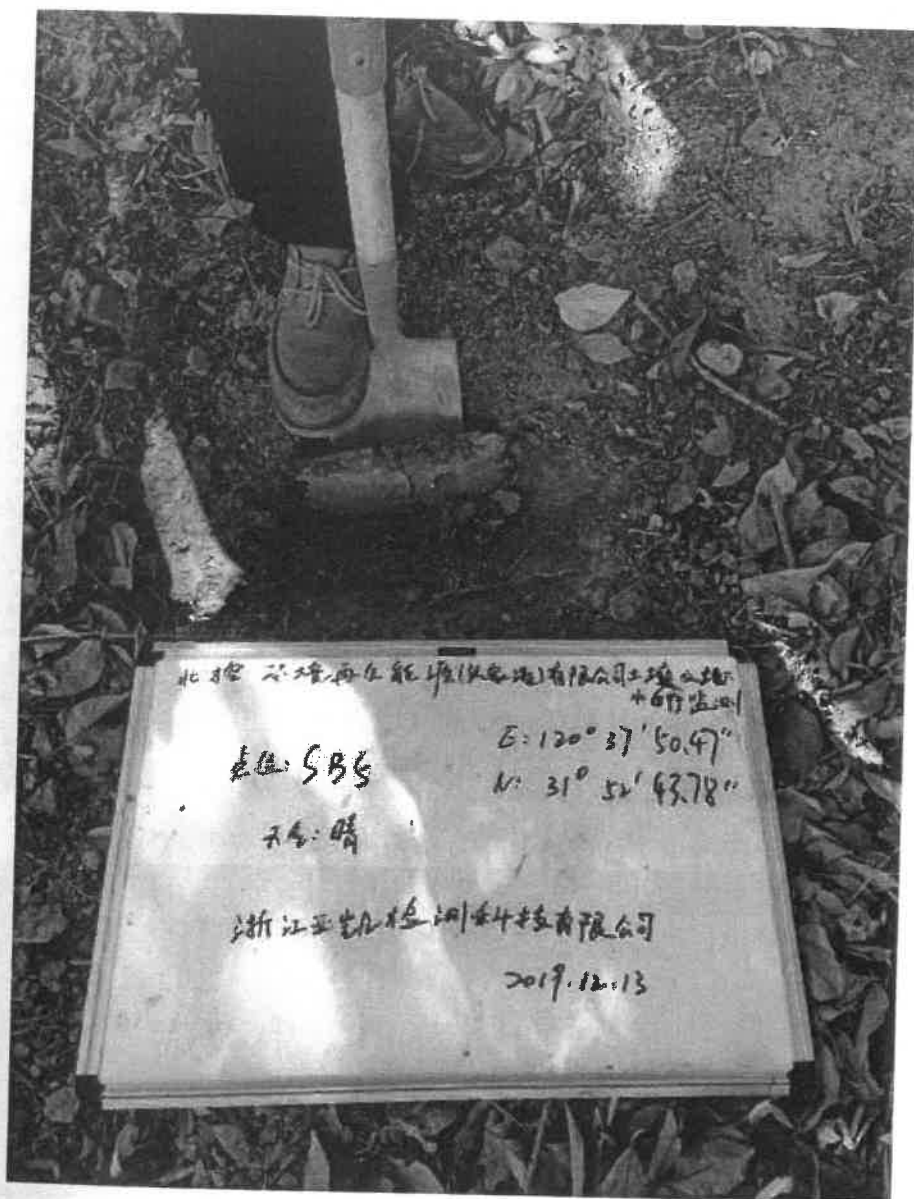 北控环境再生能源(张家港)有限公司土壤及地
下水自行监测
E: 120° 37' 50.47"
点位: SB5
N: 31° 52' 43.78"
天气: 晴
浙江亚凯检测科技有限公司
2019.12.13